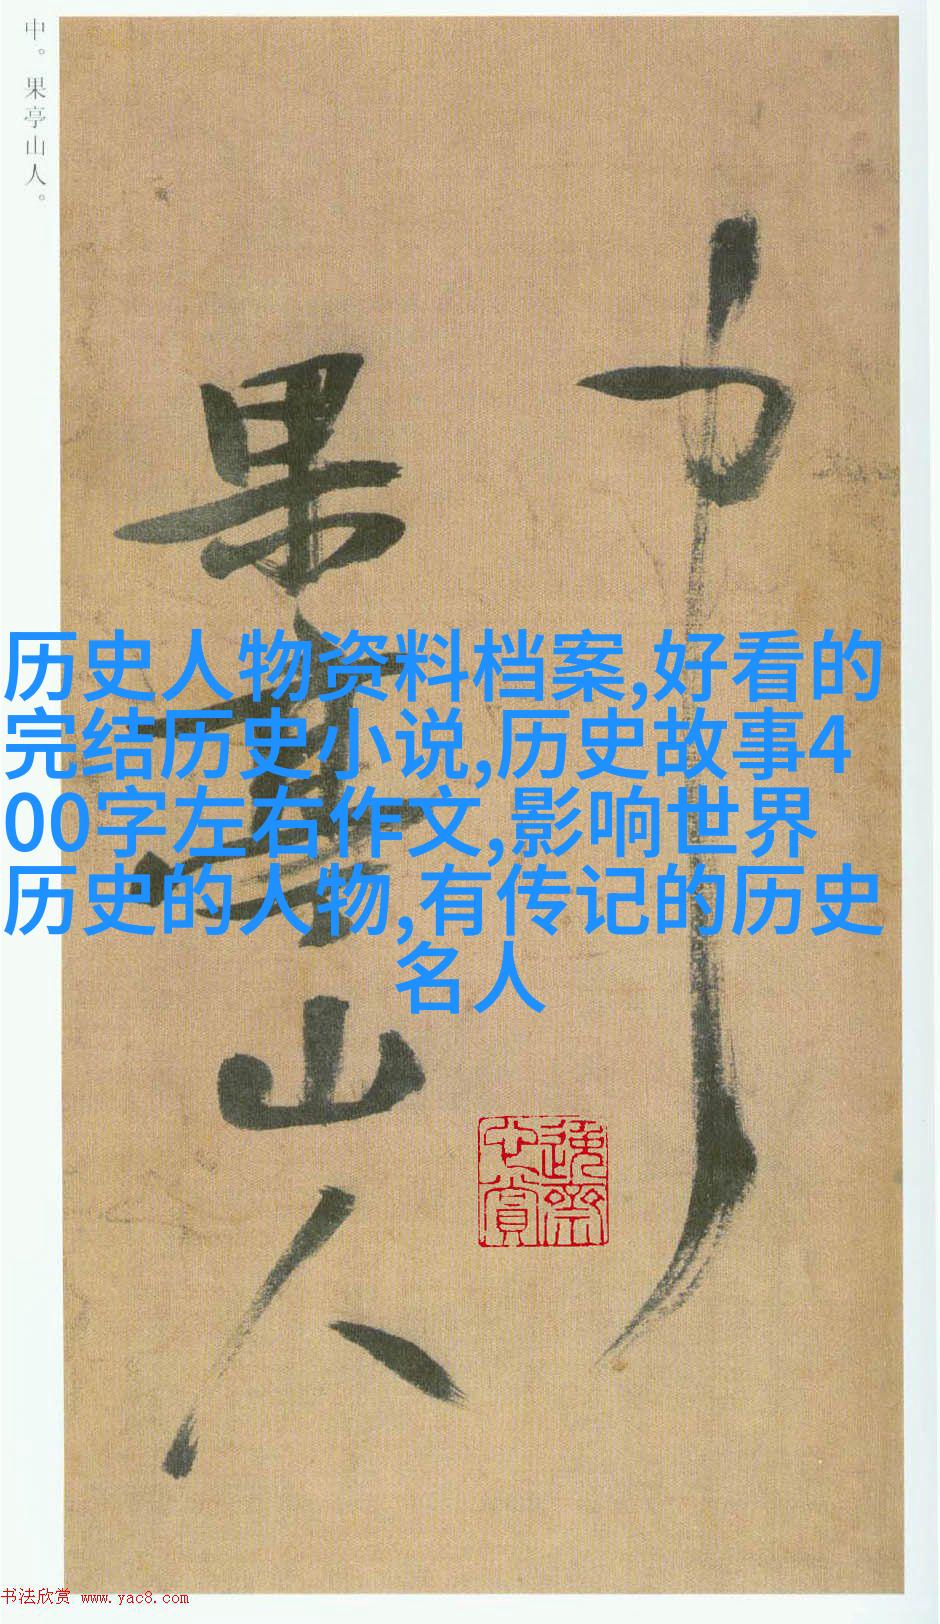 中。果亭山人。
中
果亭山人
历史人物资料档案,好看的
完结历史小说,历史故事4
00字左右作文,影响世界
历史的人物,有传记的历史
名人
逸齋
心賞
书法欣赏 www.yac8.com